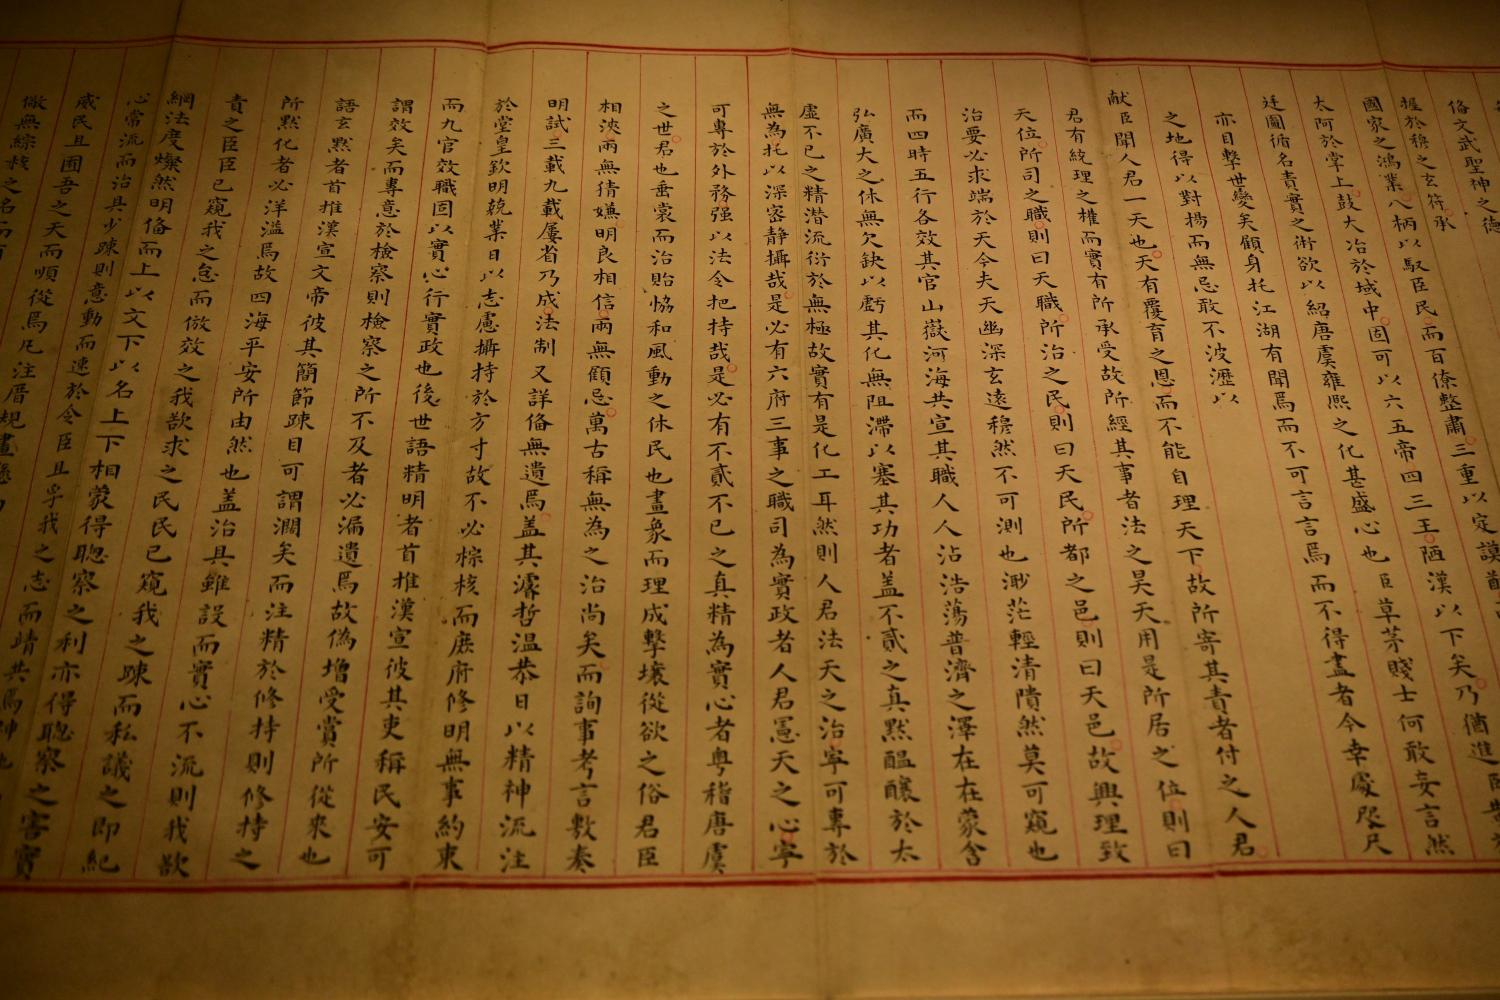 俻文武聖神之德
握於穆之玄符承
國家之鴻業八柄以馭臣民而百僚整肅三重以定謨
太阿於掌上鼓大冶於域中固可以六五帝四三王陋漢以下矣乃猶進
廷圖循名責實之術欲以紹唐虞雍熙之化甚盛心也臣草茅賤士何敢妄言然
亦目擊世變矣顧身托江湖有聞焉而不可言言焉而不得盡者今幸處咫尺
之地得以對揚而無忌敢不波瀝以
献臣聞人君一天也天有覆育之恩而不能自理天下故所寄其責者付之人君
君有統理之權而實有所承受故所經其事者法之昊天用是所居之位則曰
天位所司之職則曰天職所治之民則曰天民所都之邑則曰天邑故興理致
治要必求端於天今夫天幽深玄遠穆然不可測也渺茫輕清隤然莫可窺也
而四時五行各效其官山嶽河海共宣其職人人沾浩蕩普濟之澤在在蒙含
弘廣大之休無欠缺以虧其化無阻滯以塞其功者蓋不貳之真默醞釀於太
虛不已之精潛流衍於無極故實有是化工耳然則人君法天之治寧可專於
無為托以深密靜攝哉是必有六府三事之職司為實政者人君憲天之心寧
可專於外務强以法令把持哉是必有不貳不已之真精為實心者粤稽唐虞
之世君也垂裳而治貽恊和風動之休民也畫象而理成擊壤從欲之俗君臣
相浹兩無猜嫌明良相信兩無顧忌萬古稱無為之治尚矣而詢事考言敷奏
明試三載九載屢省乃成法制又詳俻無遺焉盖其濬哲溫恭日以精神流注
於堂皇欽明兢業日以志慮攝持於方寸故不必棕核而庶府修明無事約束
而九官效職固以實心行實政也後世語精明者首推漢宣彼其吏稱民安可
謂效矣而專意於檢察則檢察之所不及者必漏遺焉故偽增受賞所從來也
語玄默者首推漢宣文帝彼其簡節踈目可謂濶矣而注精於修持則修持之
所默化者必洋溢焉故四海平安所由然也盖治具雖設而實心不流則我欲
責之臣臣已窺我之怠而倣效之我欲求之民民已窺我之踈而私議之即紀
綱法度燦然明俻而上以文下以名上下相蒙得聰察之利亦得聰察之害實
心常流而治具少踈則意動而速於令臣且孚我之志而靖共焉神
威民且囿吾之天而順從焉凡注厝規畫
儆無綜核之名而有